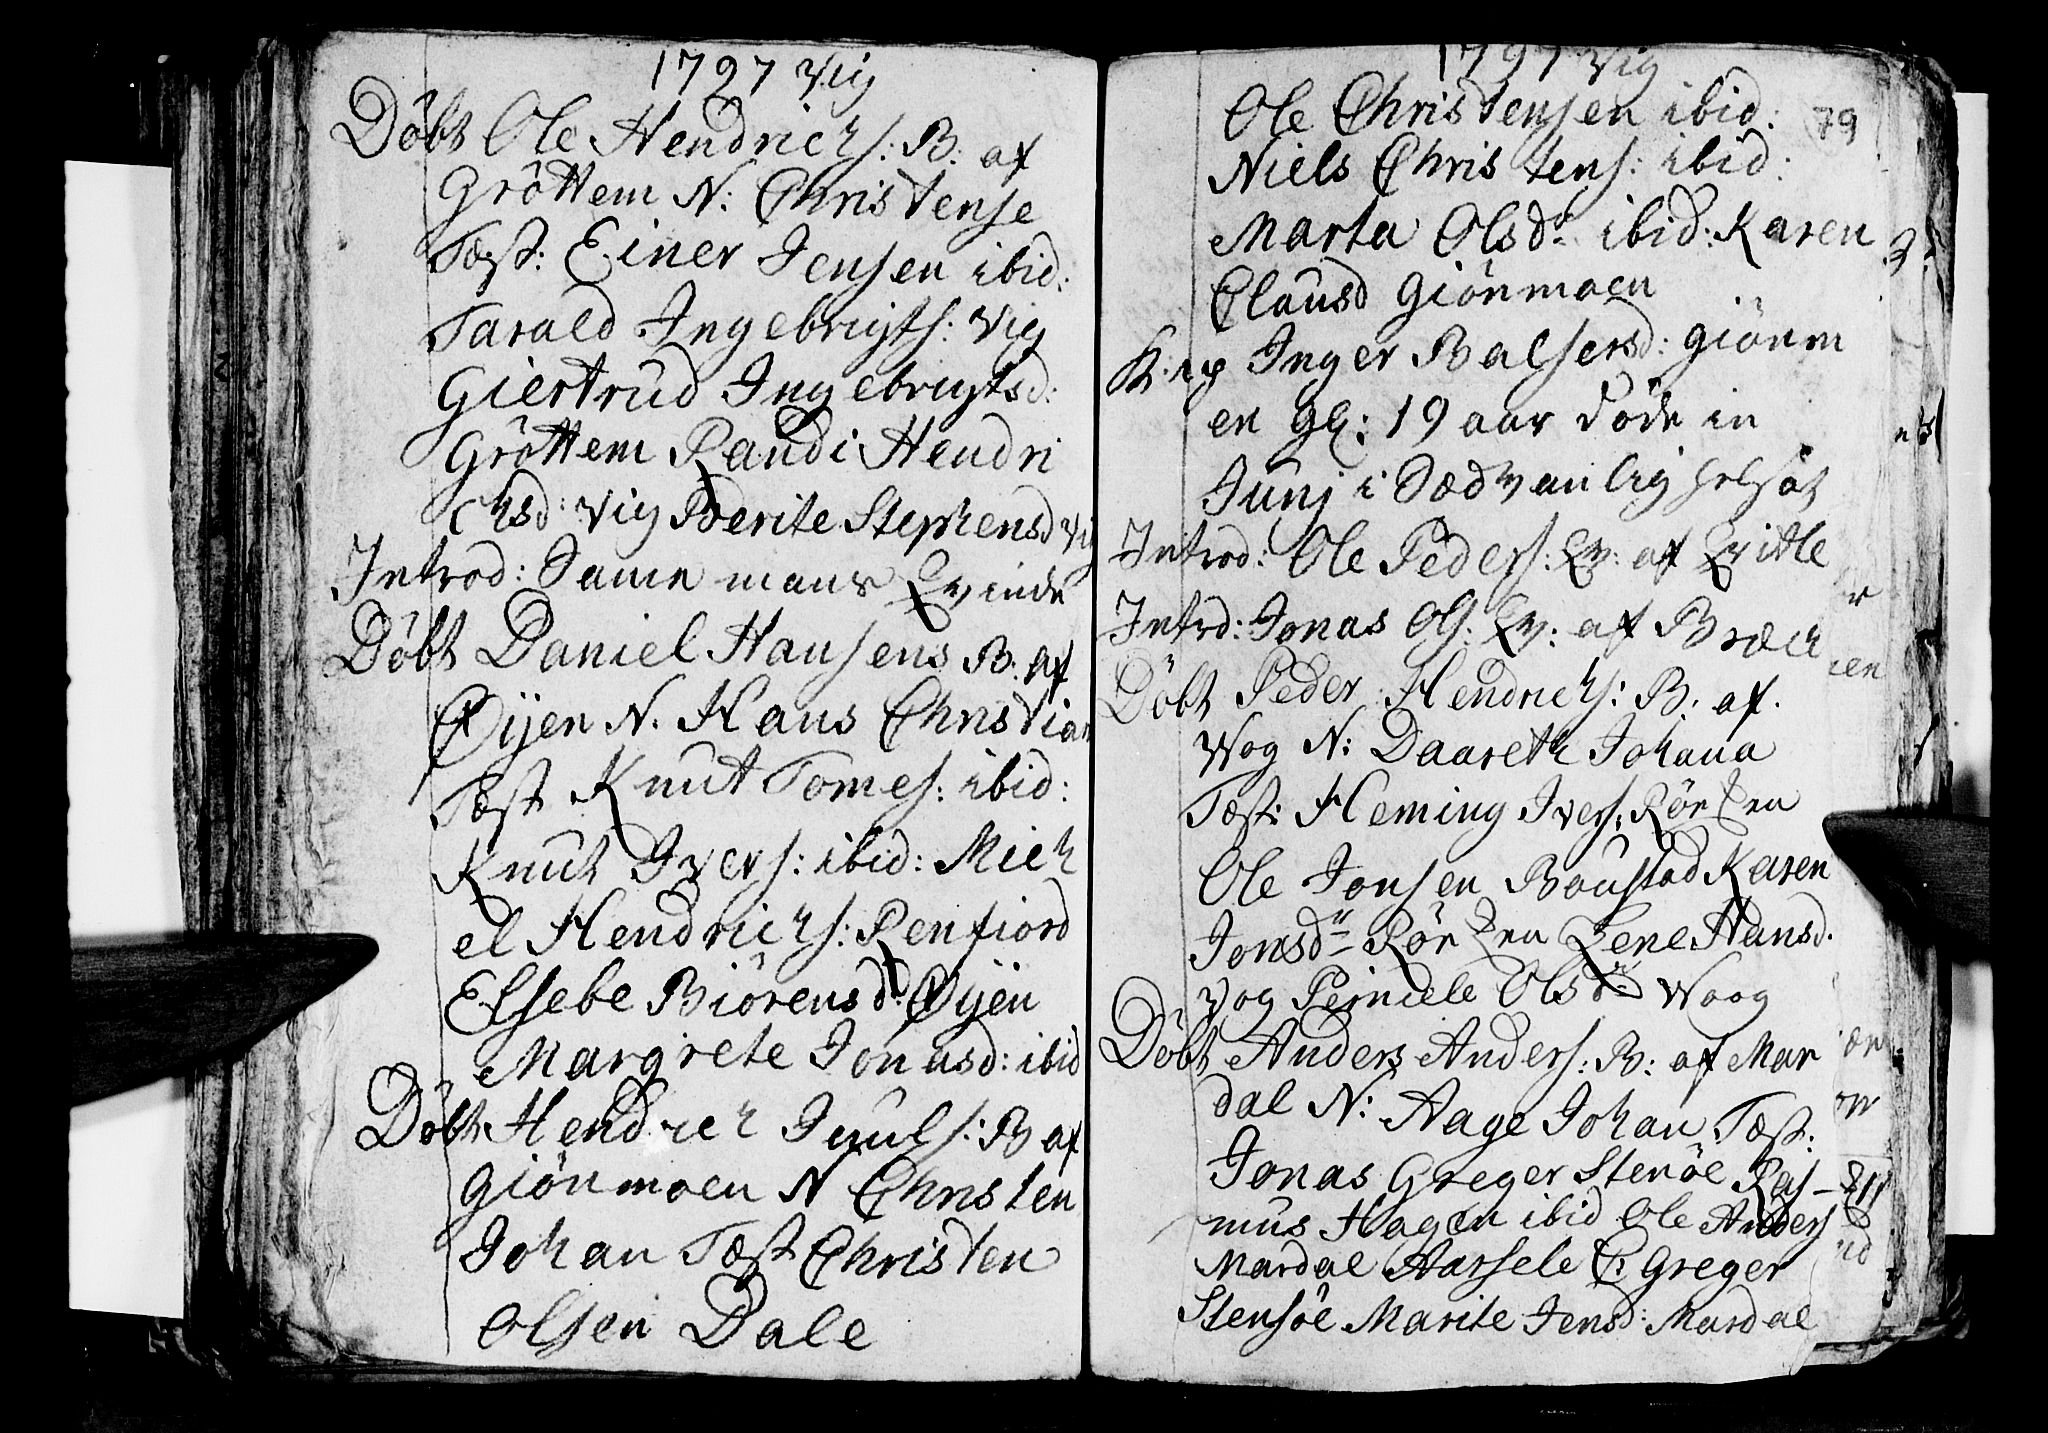 1797 Vig
Döbt Ole Hendrichs: B: af
Gröttem N: Christense
Tæst: Einer Jensen ibid:
Tarald Ingebrigts: Vig
Giertrud Ingebrigtsd:
Gröttem Randi Hendri
chsd: Vig Berite Stephensd Vig
Introd: Samme mans Qvinde
Döbt Daniel Hansens B: af
Øijen N. Hans Christian
Tæst Knut Tomes: ibid:
Knut Ivers: ibid: Mich
el Hendrichs: Renfiord
Elsebe Biörensd: Øijen
Margrete Jonasd: ibid
Döbt Hendrich Juuls: B af
Giönmoen N Christen
Johan Tæst Christen
Olsen Dale
1797 Vig
79
Ole Christensen ibid:
Niels Christens: ibid:
Marta Olsdr ibid: Karen
Clausd Giönmoen
Inger Balsersd: Giönm
en gl: 19 aar döde in
Junj i Sædvanlig
Introd: Ole Peders: Qv: af
Intrd: Jonas Ols: Qv: af Bræch
Döbt Peder Hendrichs: B: af.
Wog N: Daareth Johana
Tæst: Fleming Ivers: Rör
Ole Jonsen Boustad Karen
Jonsdr Rör Lene Hansd.
Vog Perniele Olsdr Woog
Döbt Anders Anders: B: af Mar
dal N: Aage Johan Tæst:
Jonas Greger Stensöe Ras-
mus Hagen ibid Ole Anders
Mardal Aarsele C: Greger
Stensöe Marite Jensd: Mardal